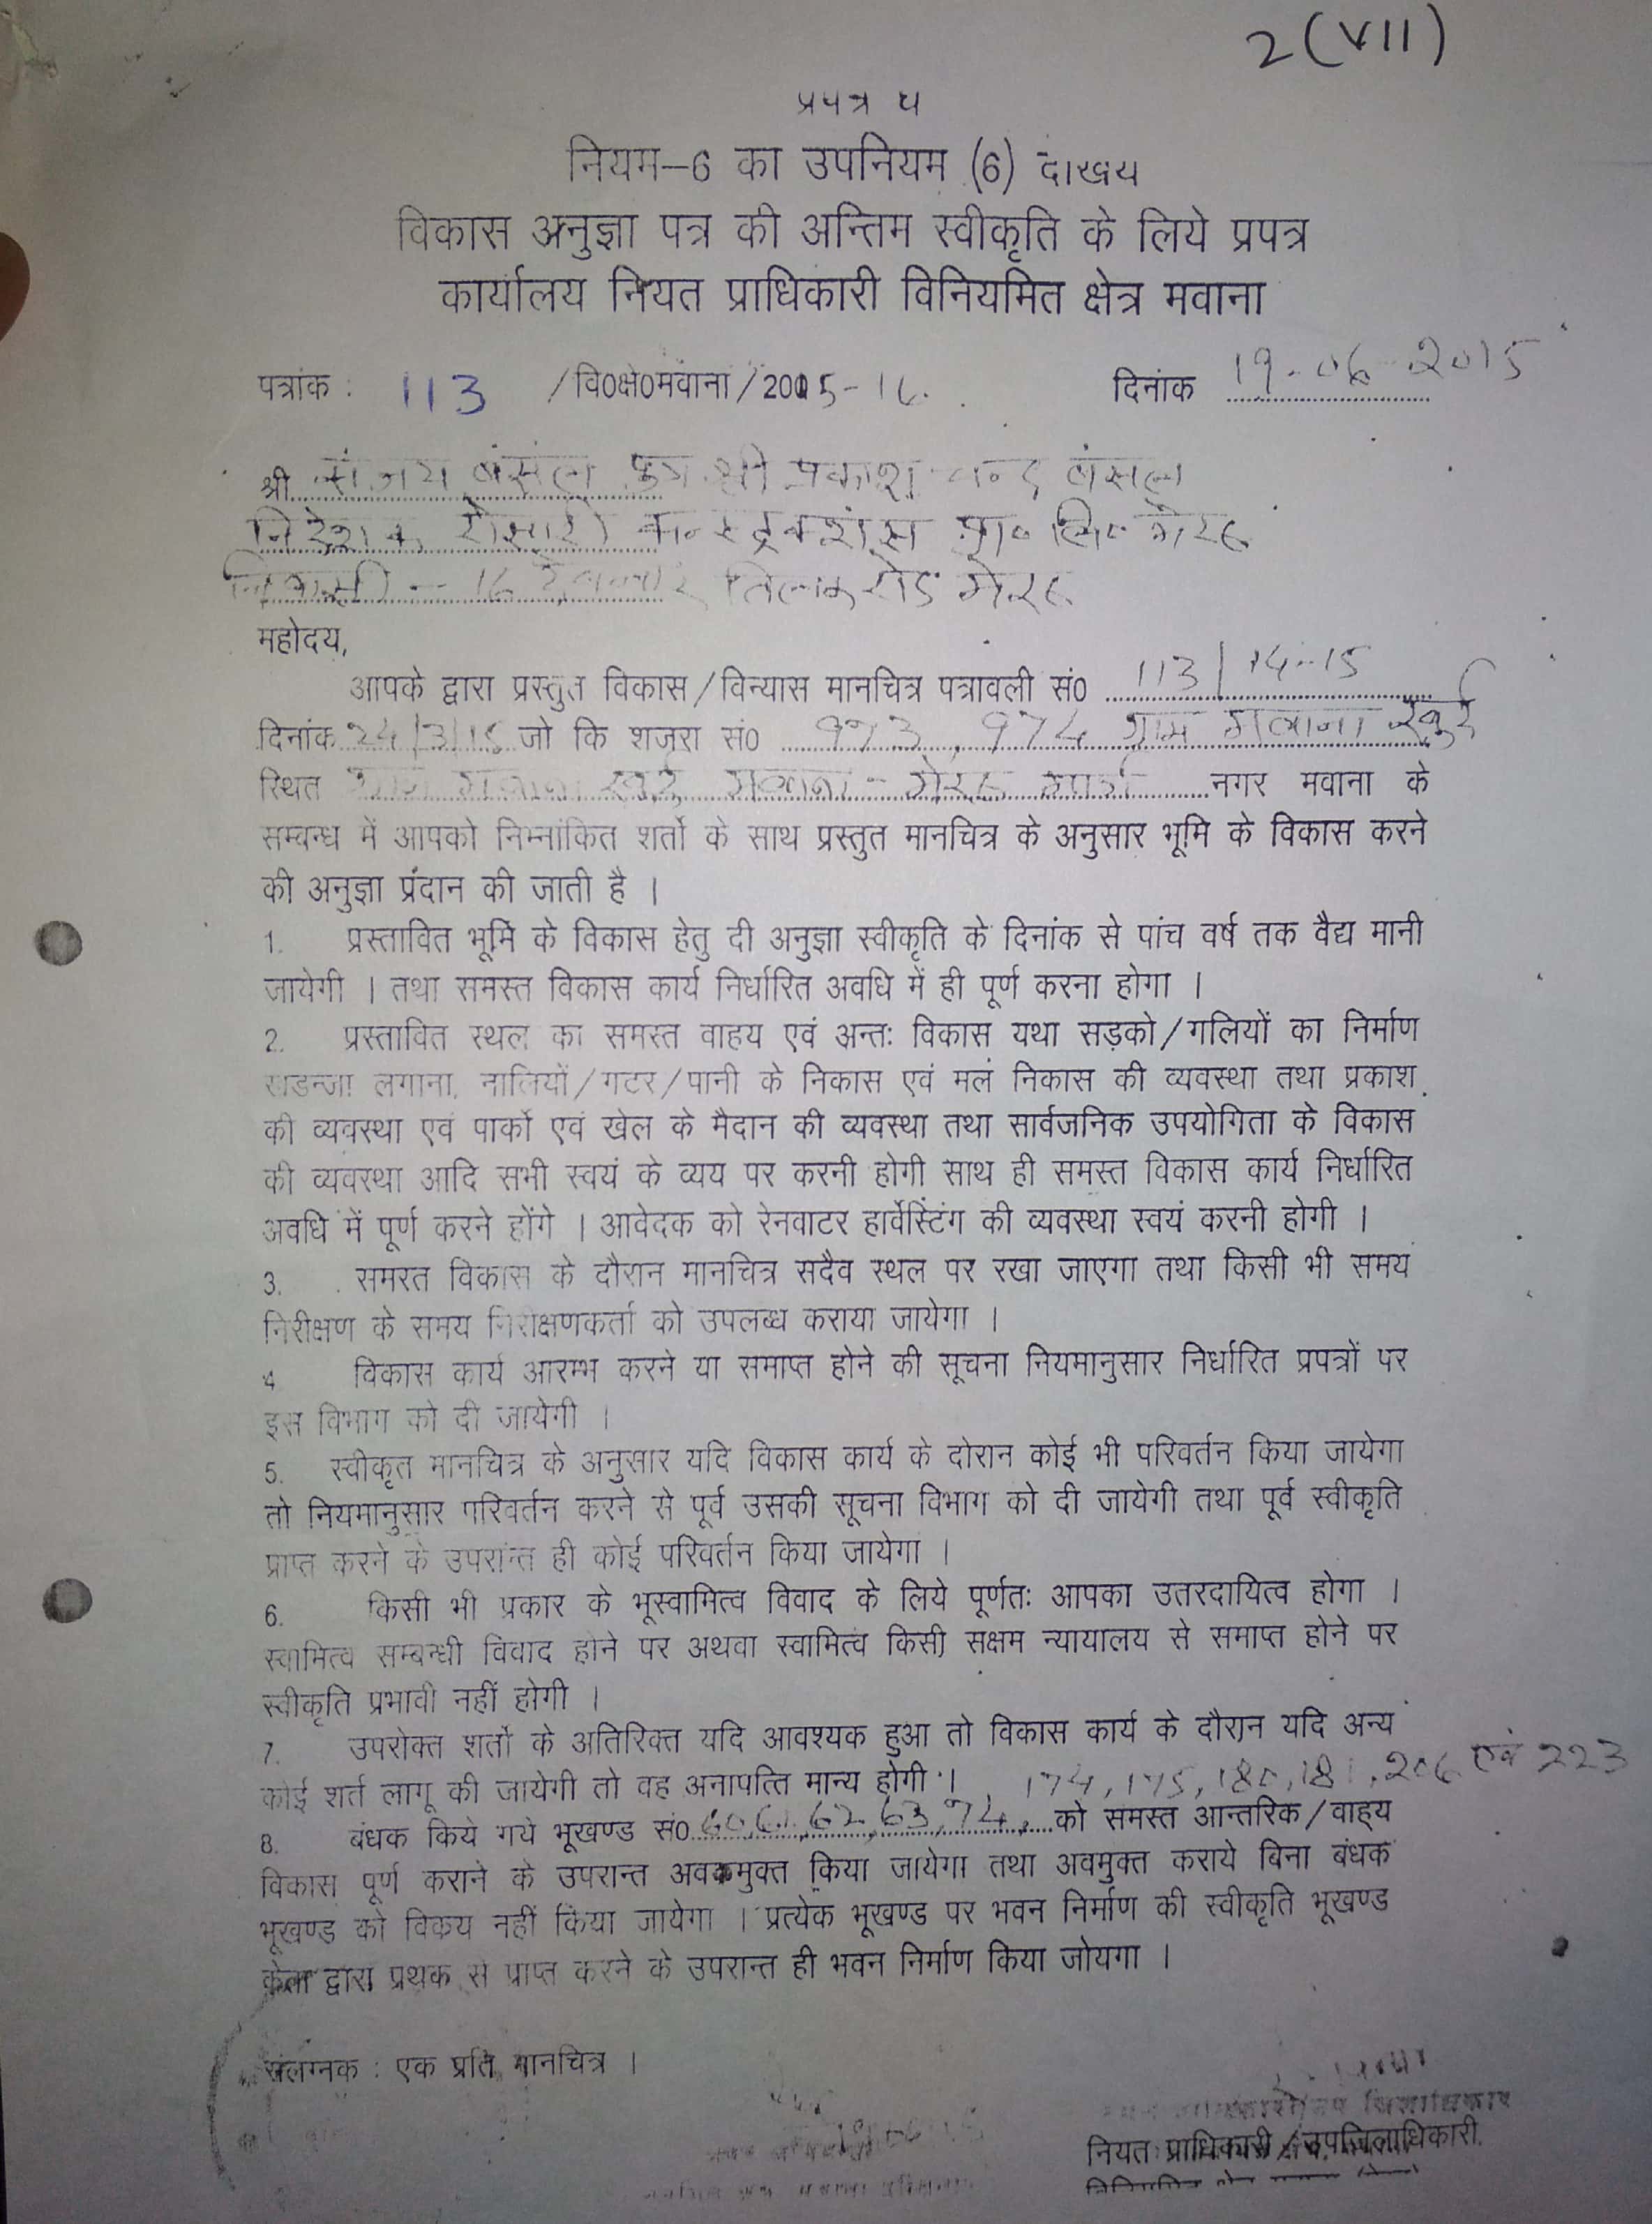 2(VII)
प्रपत्र घ
नियम–6 का उपनियम (6) दाखय
विकास अनुज्ञा पत्र की अन्तिम स्वीकृति के लिये प्रपत्र
कार्यालय नियत प्राधिकारी विनियमित क्षेत्र मवाना
पत्रांक : 113 /वि0क्षे0मवाना/2005-16. दिनांक 19-06-2015
श्री संजय बंसल पुत्र श्री प्रकाश चन्द बंसल
निदेशक कन्स्ट्रक्शंस प्रा० लि० मेरठ
निवासी - 16 तिलक रोड मेरठ
महोदय,
आपके द्वारा प्रस्तुत विकास/विन्यास मानचित्र पत्रावली सं0 113/14-15
दिनांक 24/3/15 जो कि शजरा सं0 973, 974 ग्राम मवाना खुर्द
स्थित ग्राम मवाना खुर्द मवाना - मेरठ मार्ग नगर मवाना के
सम्बन्ध में आपको निम्नांकित शर्तो के साथ प्रस्तुत मानचित्र के अनुसार भूमि के विकास करने
की अनुज्ञा प्रंदान की जाती है ।
1. प्रस्तावित भूमि के विकास हेतु दी अनुज्ञा स्वीकृति के दिनांक से पांच वर्ष तक वैद्य मानी
जायेगी । तथा समस्त विकास कार्य निर्धारित अवधि में ही पूर्ण करना होगा ।
2. प्रस्तावित स्थल का समस्त वाहय एवं अन्तः विकास यथा सड़को/गलियों का निर्माण
खडन्जा लगाना, नालियों/गटर/पानी के निकास एवं मल निकास की व्यवस्था तथा प्रकाश
की व्यवस्था एवं पार्को एवं खेल के मैदान की व्यवस्था तथा सार्वजनिक उपयोगिता के विकास
की व्यवस्था आदि सभी स्वयं के व्यय पर करनी होगी साथ ही समस्त विकास कार्य निर्धारित
अवधि में पूर्ण करने होंगे । आवेदक को रेनवाटर हार्वेस्टिंग की व्यवस्था स्वयं करनी होगी ।
3. समस्त विकास के दौरान मानचित्र सदैव स्थल पर रखा जाएगा तथा किसी भी समय
निरीक्षण के समय निरीक्षणकर्ता को उपलब्ध कराया जायेगा ।
4 विकास कार्य आरम्भ करने या समाप्त होने की सूचना नियमानुसार निर्धारित प्रपत्रों पर
इस विभाग को दी जायेगी ।
5. स्वीकृत मानचित्र के अनुसार यदि विकास कार्य के दोरान कोई भी परिवर्तन किया जायेगा
तो नियमानुसार परिवर्तन करने से पूर्व उसकी सूचना विभाग को दी जायेगी तथा पूर्व स्वीकृति
प्राप्त करने के उपरान्त ही कोई परिवर्तन किया जायेगा ।
6. किसी भी प्रकार के भूस्वामित्व विवाद के लिये पूर्णतः आपका उतरदायित्व होगा ।
स्वामित्व सम्बन्धी विवाद होने पर अथवा स्वामित्व किसी सक्षम न्यायालय से समाप्त होने पर
स्वीकृति प्रभावी नहीं होगी ।
7. उपरोक्त शर्तो के अतिरिक्त यदि आवश्यक हुआ तो विकास कार्य के दौरान यदि अन्य
कोई शर्त लागू की जायेगी तो वह अनापत्ति मान्य होगी । 174, 175, 180, 181, 206 एवं 223
8. बंधक किये गये भूखण्ड सं0 60,61,62,63,74, को समस्त आन्तरिक/वाह्य
विकास पूर्ण कराने के उपरान्त अवमुक्त किया जायेगा तथा अवमुक्त कराये बिना बंधक
भूखण्ड को विकय नहीं किया जायेगा । प्रत्येक भूखण्ड पर भवन निर्माण की स्वीकृति भूखण्ड
केता द्वारा प्रथक से प्राप्त करने के उपरान्त ही भवन निर्माण किया जोयगा ।
संलग्नक : एक प्रति मानचित्र ।
नियत प्राधिकारी/उपजिलाधिकारी